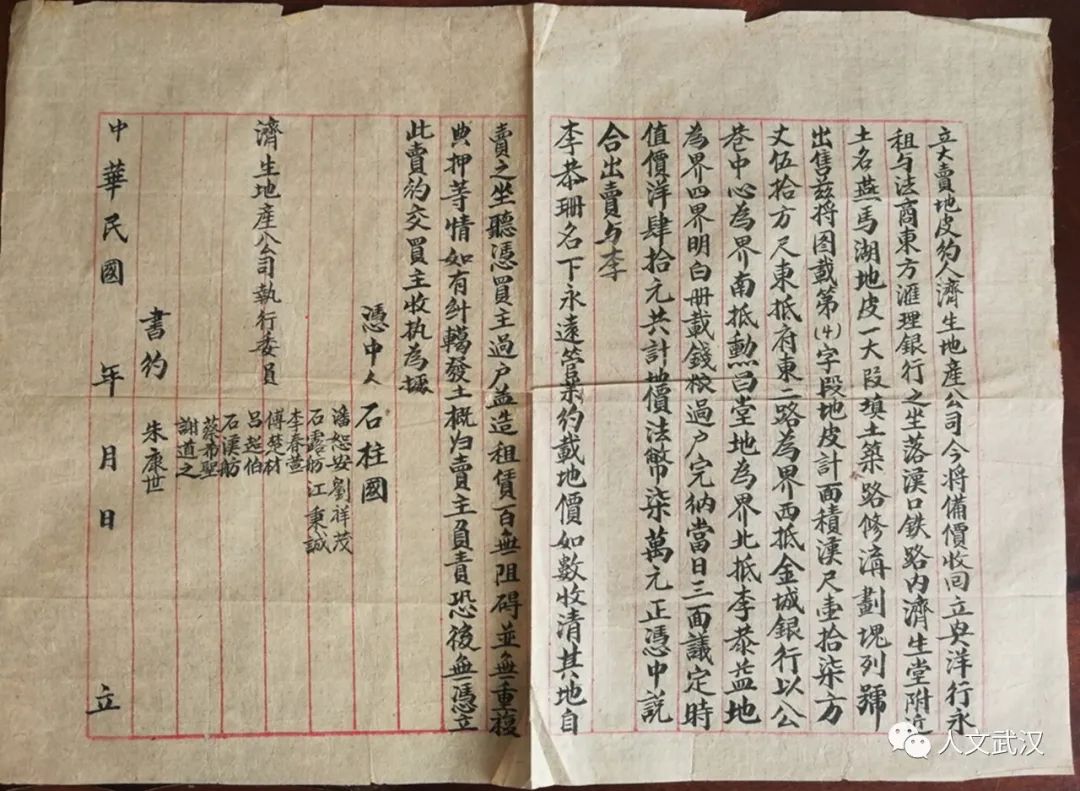 立大賣地皮約人濟生地產公司今將備價收回立興洋行永
租与法商東方滙理銀行之坐落漢口鉄路内濟生堂附近
土名燕馬湖地皮一大段填土築路修溝劃塊列號
出售兹将图載第(4)字段地皮計面積漢尺壹拾柒方
丈伍拾方尺東抵府東二路為界西抵金城銀行以公
巷中心為界南抵勲昌堂地為界北抵李恭益地
為界四界明白冊載錢粮過户完納當日三面議定時
值價洋肆拾元共計地價法幣柒萬元正憑中説
合出賣与李
李恭珊名下永遠管業約載地價如數收清其地自
賣之坐聽憑買主過户盖造租賃百無阻碍並無重複
典押等情如有糾轕發生概归賣主負責恐後無憑立
此賣約交買主收执為據
憑中人 石柱國
潘恕安 劉祥茂
石露舫 江秉誠
李春萱
濟生地產公司執行委員 傅楚材
吕起伯
石溪舫
蔡希聖
謝道之
書約 朱康世
中華民國 年 月 日 立
人文武汉